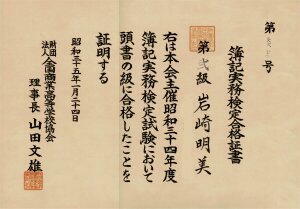 第 号
簿記実務検定合格証書
第弐級 岩崎明美
右は本会主催昭和三十四年度
簿記実務検定試験において
頭書の級に合格したことを
証明する
昭和三十五年一月二十四日
財団法人 全国商業高等学校協会
理事長 山田文雄